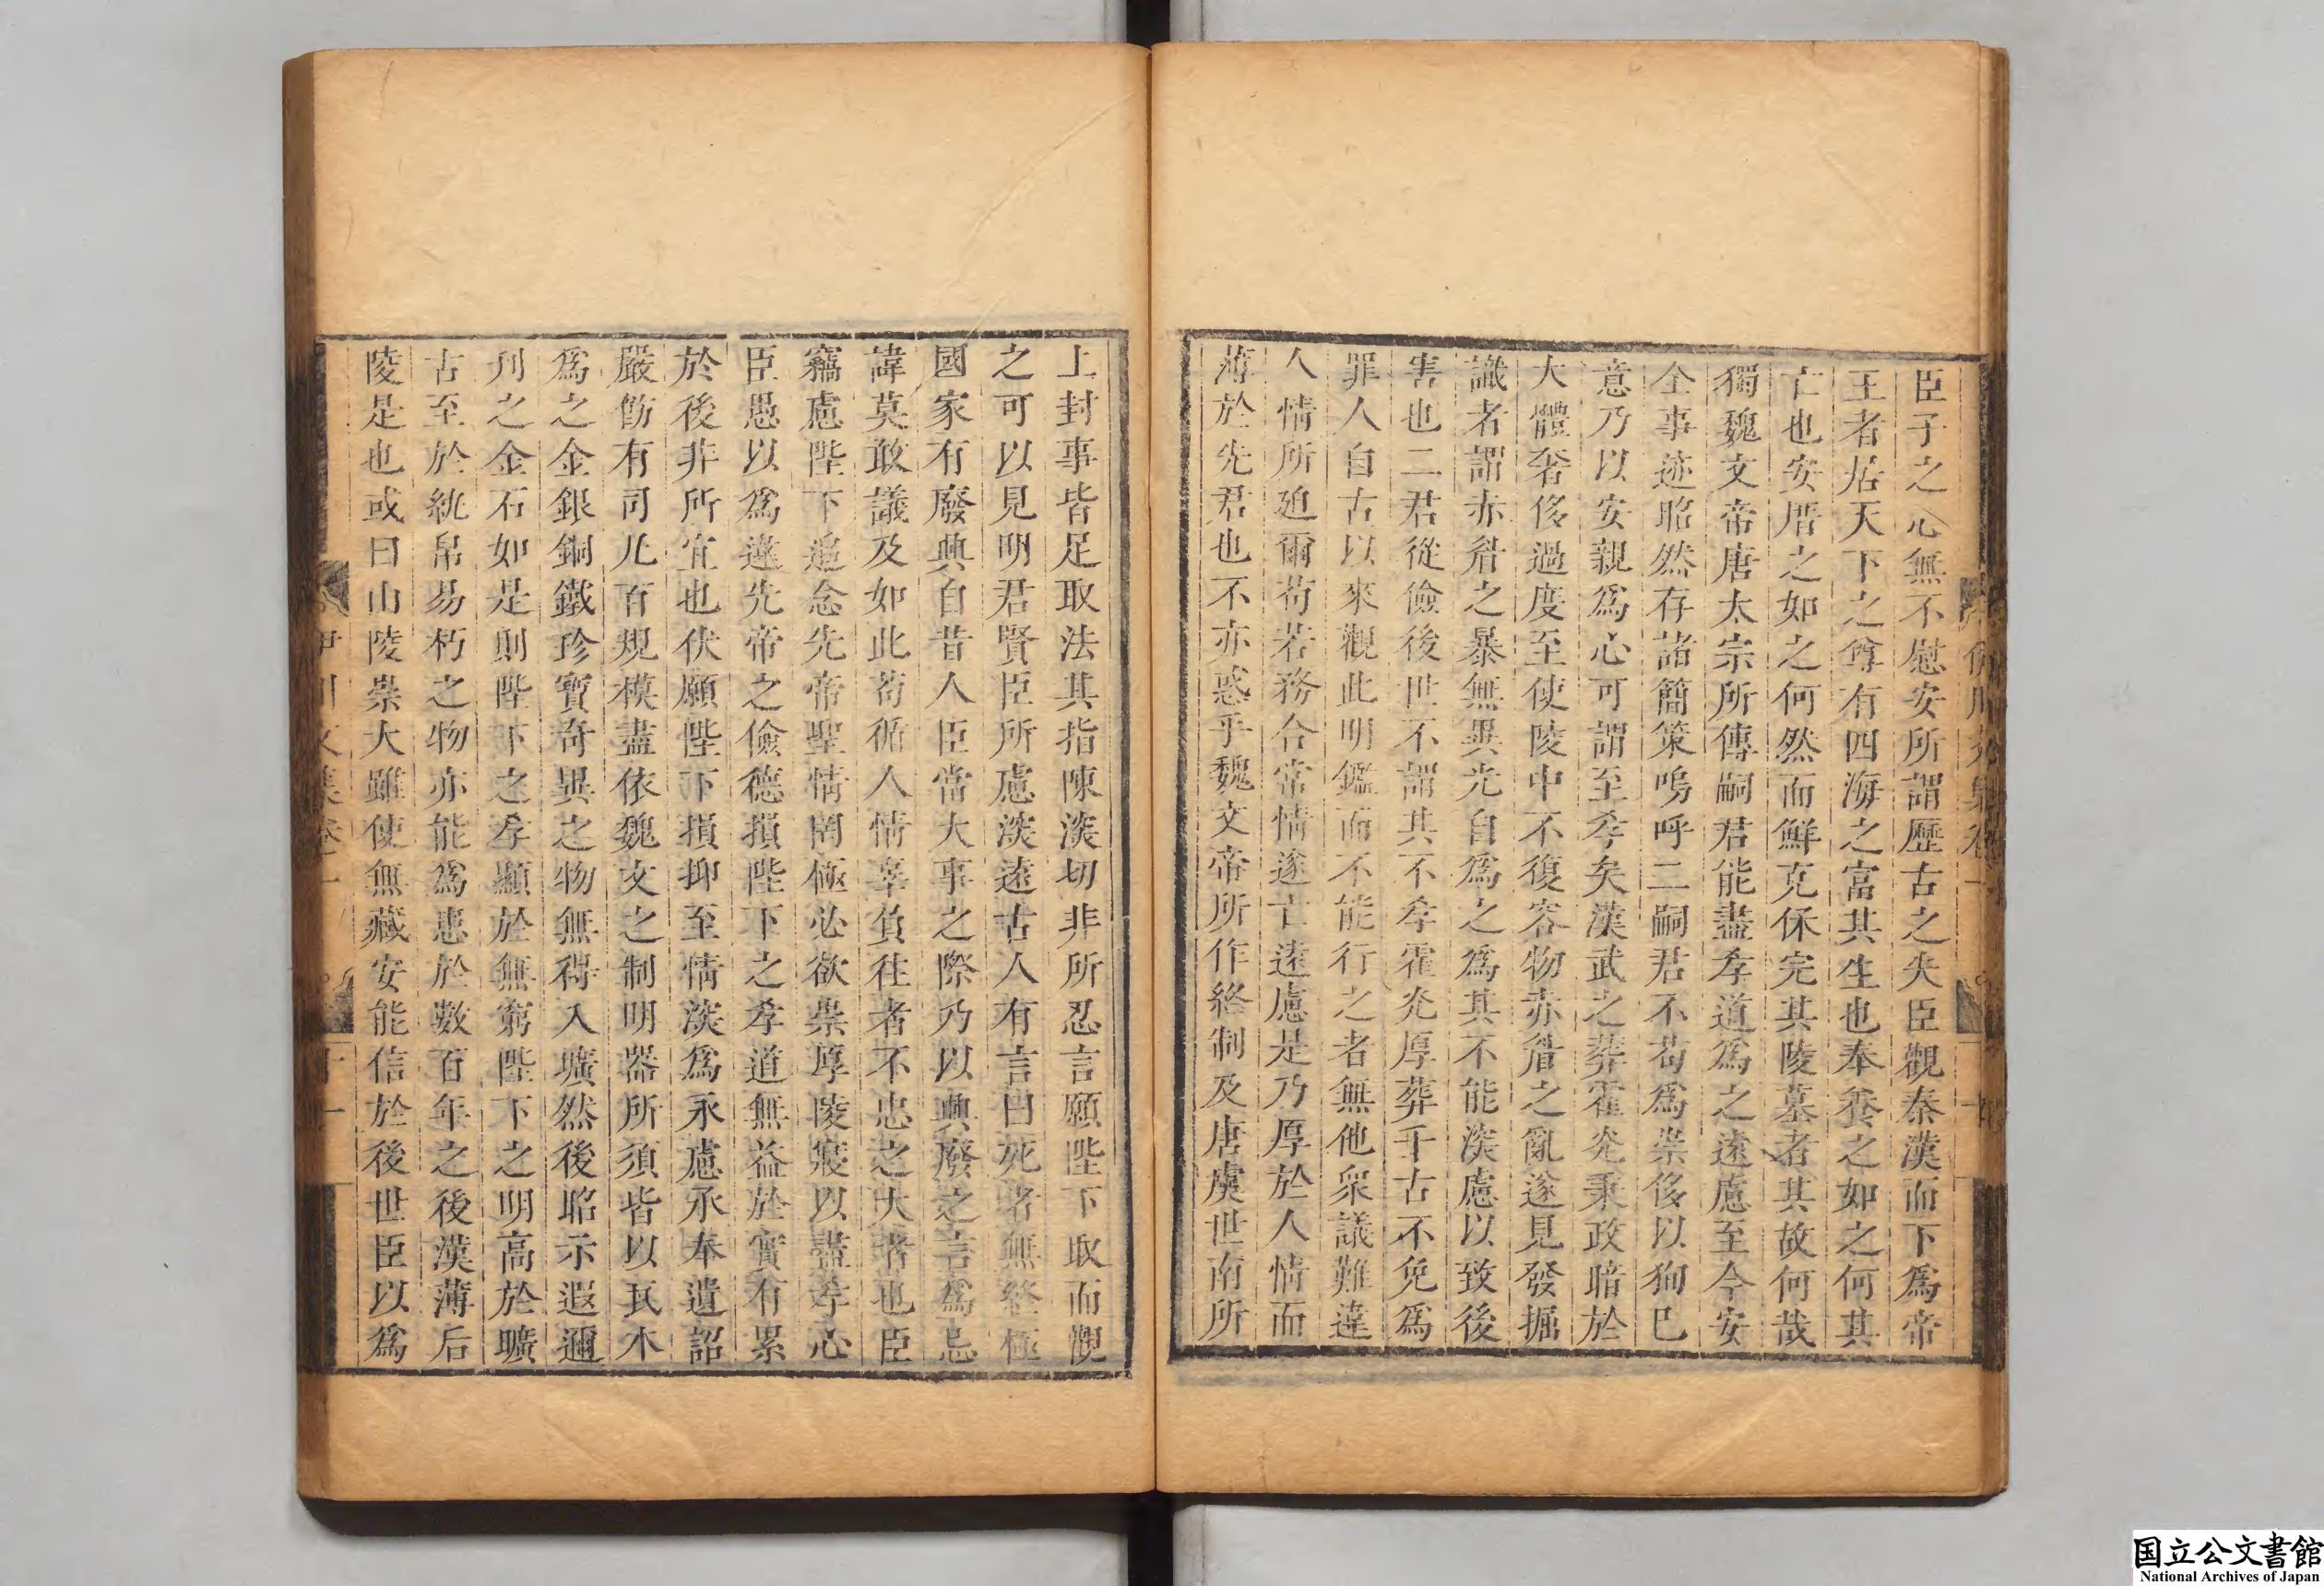 臣子之心無不慰安所謂歷古之失臣觀秦漢而下爲帝
王者居天下之尊有四海之富其生也奉養之如之何其
亡也安厝之如之何然而鮮克保完其陵墓者其故何哉
獨魏文帝唐太宗所傳嗣君能盡孝道爲之遠慮至今安
全事迹昭然存諸簡策嗚呼二嗣君不苟爲崇侈以狥巳
意乃以安親爲心可謂至孝矣漢武之葬霍光秉政暗於
大體奢侈過度至使陵中不復容物赤眉之亂遂見發掘
識者謂赤眉之暴無異光自爲之爲其不能深慮以致後
害也二君從儉後世不謂其不孝霍光厚葬千古不免爲
罪人自古以來觀此明鑑而不能行之者無他衆議難違
人情所迫爾苟若務合常情遂亡遠慮是乃厚於人情而
薄於先君也不亦惑乎魏文帝所作終制及唐虞世南所
上封事皆足取法其指陳深切非所忍言願陛下取而觀
之可以見明君賢臣所慮深遠古人有言曰死者無終極
國家有廢興自昔人臣當大事之際乃以興廢之言爲忌
諱莫敢議及如此苟循人情辜負往者不忠之大者也臣
竊慮陛下追念先帝聖情罔極必欲崇厚陵寢以盡孝心
臣愚以爲違先帝之儉德損陛下之孝道無益於實有累
於後非所宜也伏願陛下損抑至情深爲永慮承奉遺詔
嚴飭有司凡百規模盡依魏文之制明器所須皆以瓦木
爲之金銀銅鐵珍寶奇異之物無得入壙然後昭示遐邇
刊之金石如是則陛下之孝顯於無窮陛下之明高於曠
古至於紈帛易朽之物亦能爲患於數百年之後漢薄后
陵是也或曰山陵崇大雖使無藏安能信於後世臣以爲
伊川文集卷一
十一
国立公文書館
National Archives of Japan